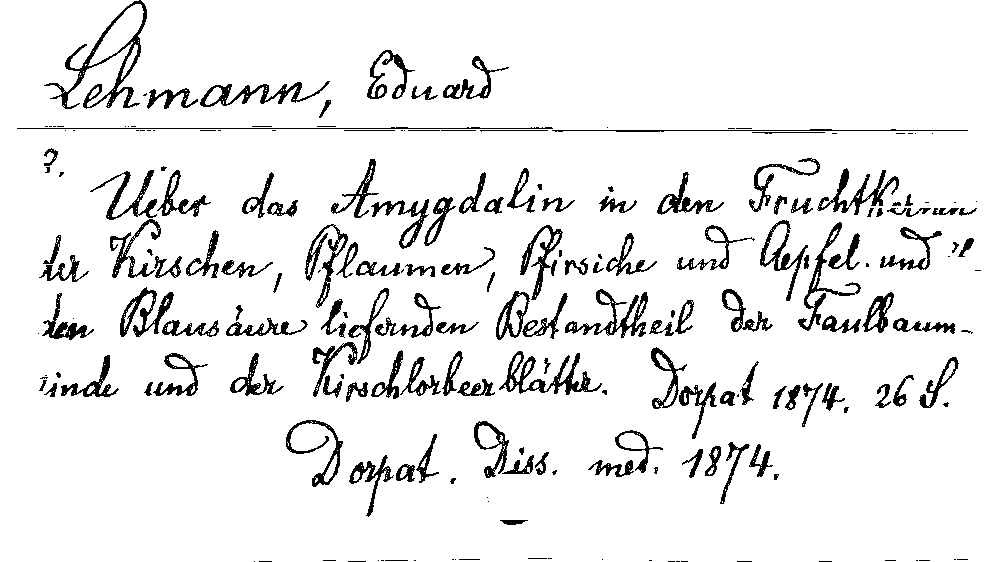 Lehmann, Eduard
2.
Ueber das Amygdalin in den Fruchtkernen
der Kirschen, Pflaumen, Pfirsiche und Aepfel und
den Blausäure liefernden Bestandtheil der Faulbaum-
rinde und der Kirschlorbeerblätter. Dorpat 1874. 26 S.
Dorpat. Diss. med. 1874.